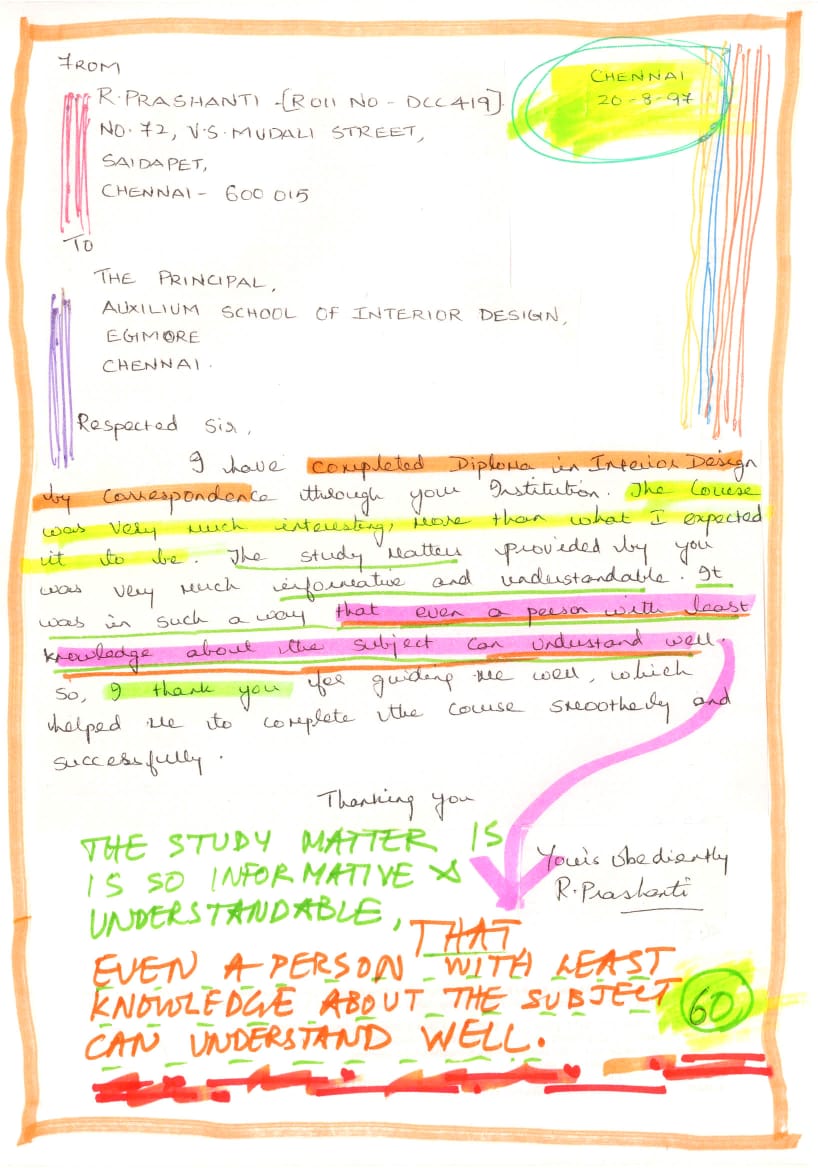 FROM
R. PRASHANTI - [ROll NO - DCC419].
NO. 72, V.S. MUDALI STREET,
SAIDAPET,
CHENNAI - 600 015
CHENNAI
20-8-97
TO
THE PRINCIPAL,
AUXILIUM SCHOOL OF INTERIOR DESIGN,
EGIMORE
CHENNAI.
Respected Sir,
I have completed Diploma in Interior Design
by Correspondence through your Institution. The Course
was very much interesting, more than what I expected
it to be. The study matters provided by you
was very much informative and understandable. It
was in such a way that even a person with least
knowledge about the subject can understand well.
So, I thank you for guiding me well, which
helped me to complete the course smoothely and
successfully.
Thanking you
Your's obediently
R. Prashanti
THE STUDY MATTER IS
IS SO INFORMATIVE &
UNDERSTANDABLE, THAT
EVEN A PERSON WITH LEAST
KNOWLEDGE ABOUT THE SUBJECT
CAN UNDERSTAND WELL.
60